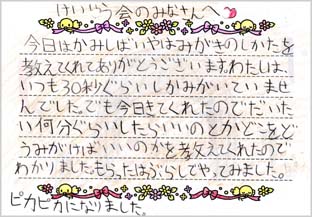 けいゆう会のみなさんへ
今日はかみしばいやはみがきのしかたを
教えてくれてありがとうございます。わたしは、
いつも30秒ぐらいしかみがいていませ
んでした。でも今日きてくれたのでだいた
い何分ぐらいしたらいいのとかどこをど
うみがけばいいのかを教えてくれたので
わかりました。もらったはぶらしでやってみました。
ピカピカになりました。